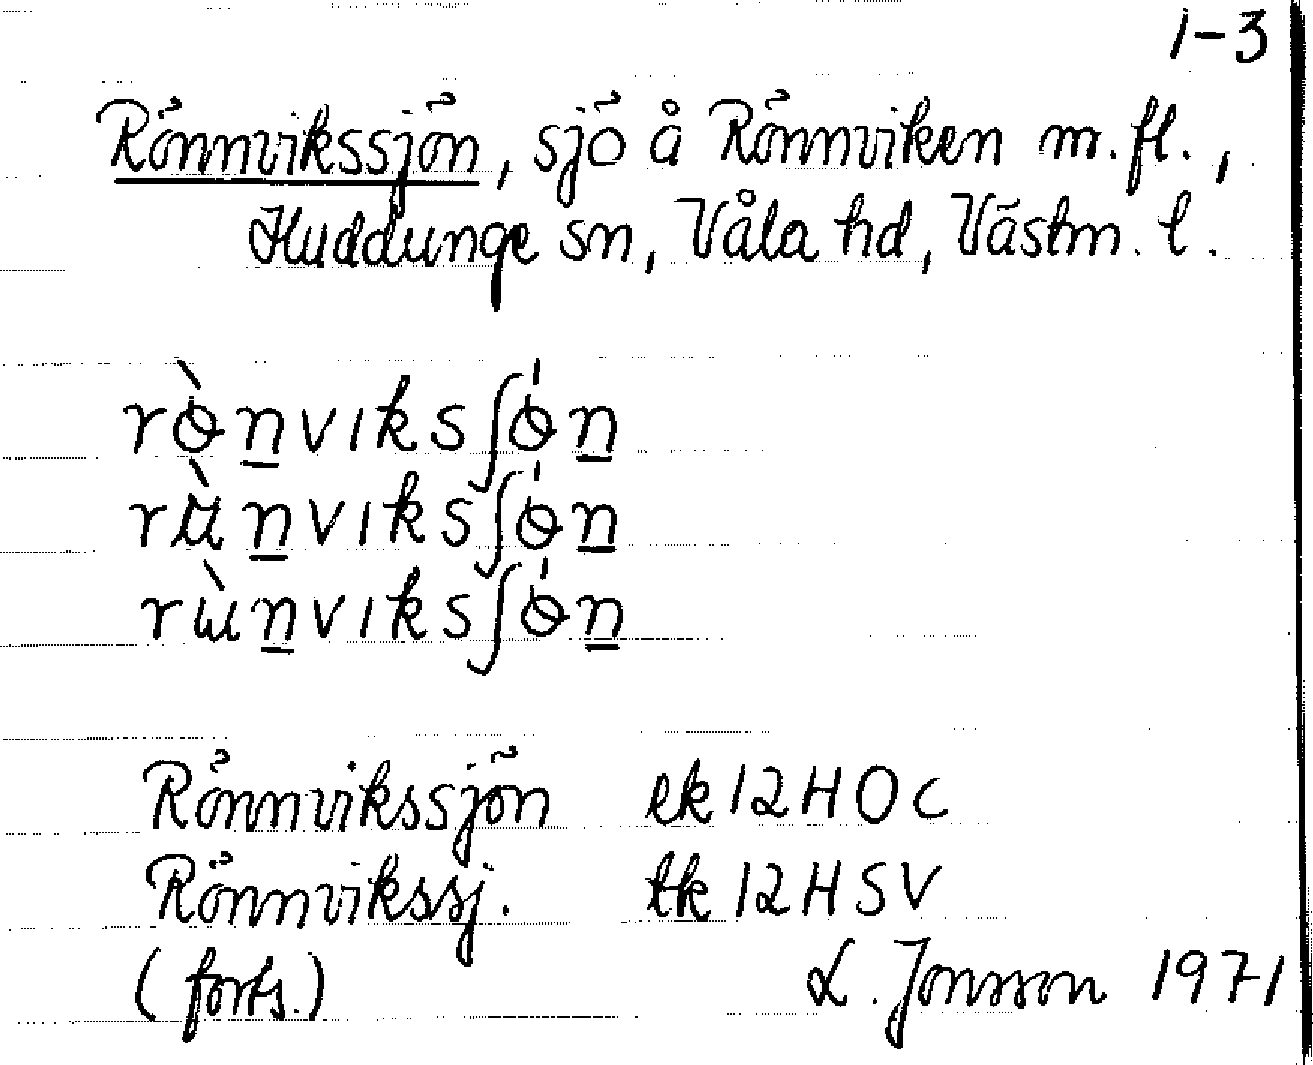 1-3
Rönnvikssjön, sjö å Rönnviken m.fl.,
Huddunge sn, Våla hd, Västm. l.
rɵ̀n̲vıksʃɵ́n̲
n̲vıksʃɵ́n̲
n̲vıksʃɵ́n̲
Rönnvikssjön ek 12H0c
Rönnvikssj. tk 12HSV
(forts.) L. Jonsson 1971